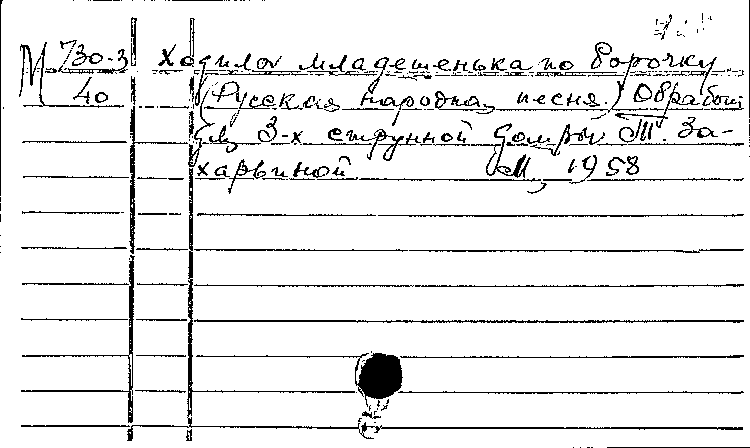 М 730-3 Ходила младешенька по борочку
40 (Русская народная песня.) Обработ.
для 3-х струнной домры Т. За-
харьиной М, 1958